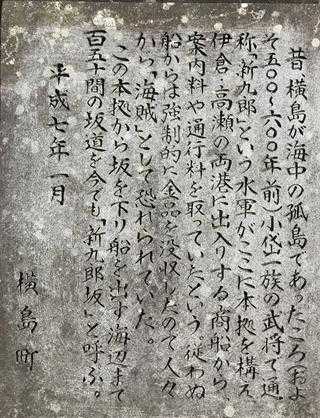 昔横島が海中の孤島であったころ(およ
そ五〇〇~六〇〇年前)小岱一族の武将で通
称「新九郎」という水軍がここに本拠を構え、
伊倉・高瀬の両港に出入りする商船から、
案内料や通行料を取っていたという。従わぬ
船からは強制的に金品を没収したので人々
から「海賊」として恐れられていた。
この本拠から坂を下り船を出す海辺まで
百五十間の坂道を今でも「新九郎坂」と呼ぶ。
平成七年一月
横島町